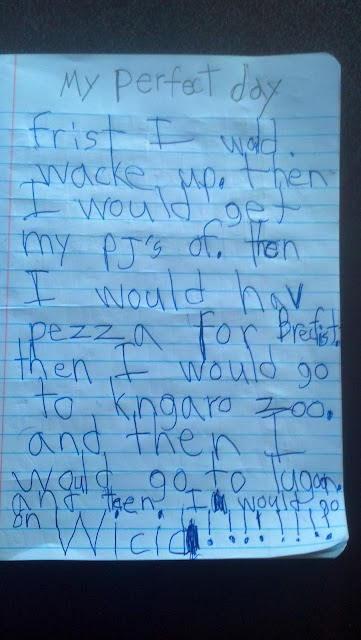 My perfect day
Frist I wold.
wacke up. then
I would get
my pj's of. then
I would hav
pezza for Breifist.
then I would go
to kngaro zoo.
and then I
would go to lugan.
and then. I would go
on Wicid!!!!!!!!